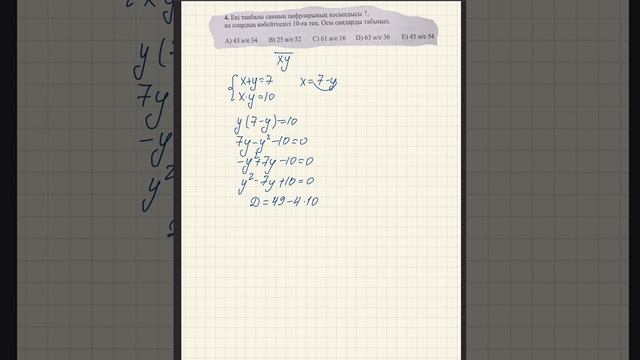 4. Екі таңбалы санның цифрларының қосындысы 7,
ал олардың көбейтіндісі 10-ға тең. Осы сандарды табыңыз.
A) 43 н/е 34 B) 25 н/е 52 C) 61 н/е 16 D) 63 н/е 36 E) 45 н/е 54
xy
x+y=7 x=7-y
x·y=10
y(7-y)=10
7y-y²-10=0
-y²+7y-10=0
y²-7y+10=0
D=49-4·10